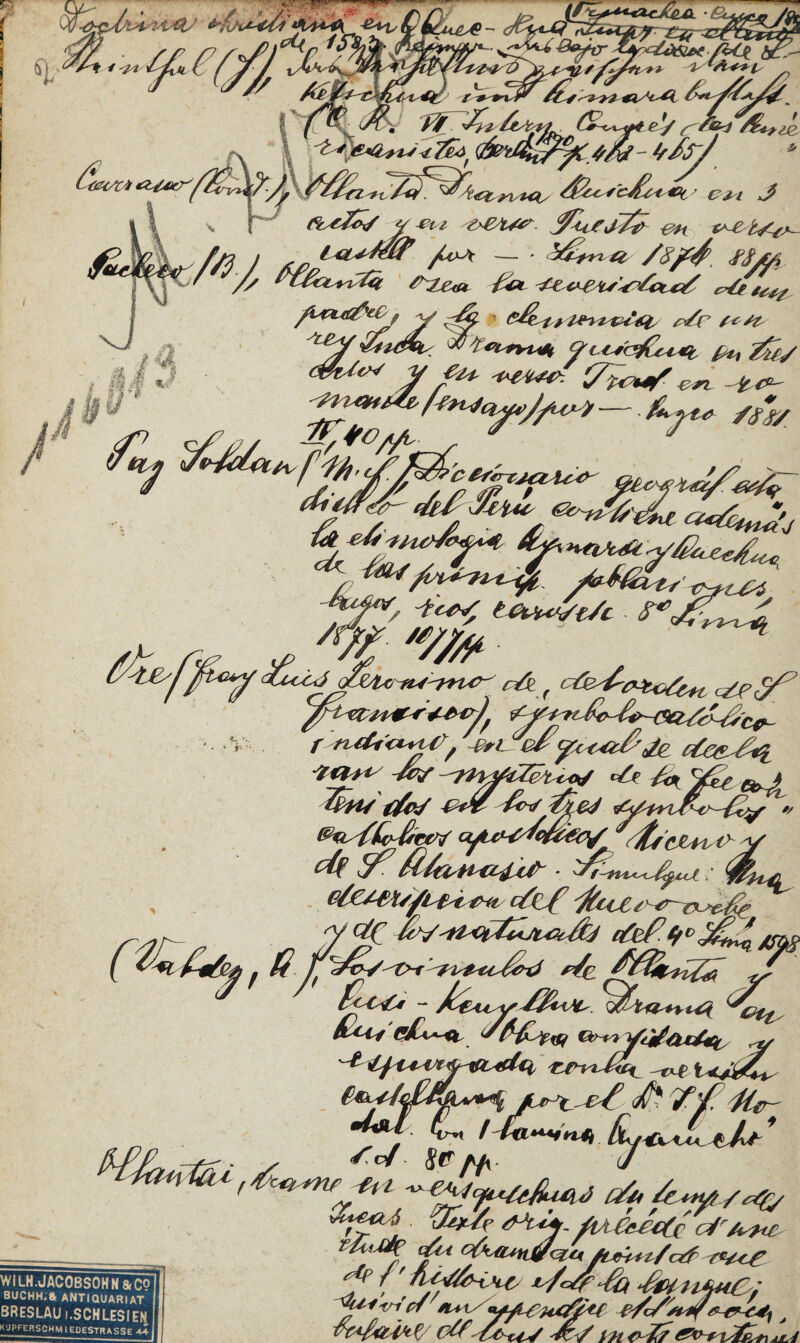 Doctrina christiana en QQuec-
de 1583
Steinthal (J), das Verhältnis zwischen dem
Ketschua und Aimara
(C. R. VII Intern. Congrès des Amé
ricanistes, Berlin 1890 p. 462-465)
Carrasco (Const.), Ollanta. Drama Quichua en 3
actos y en verso. Puesto en verso
castell por — . Lima 1876. 88 pp
Pacheco (B.), Ollanta osea la severidad de un
padre, y la clemencia de un
rey Inca. Drama quichua en tres
actos y en verso. Trad en ro-
mance (ensayo) por — . 1881
IV, 40 pp.
116013
Paz Soldan (M. f.) Diccionario geográf. esta
distico del Perú contiene además
la etimologia Aymara y Quechua
de las princip. poblaciones,
lagos, rios, cerros etc. 8º Lima
1877. 1077 pp.
Ore (fray Luis Jeronimo de, del orden de S
francisco), symbolo católico
indiano, en el qual se decla
ran los mysterios de la fee con
tenidos en los tres symbolos
catholicos apostolicos, Niceno y
de S. Atanasio. Simulque: Una
descripcion del Nuevo orbe
y de los naturales del. 4º Lima 1598
(Valdez, A.), Los vinculos de Ollanta y
Cusi-Keuyllur. Drama en
Quichua. Obra compilada y
espurgada con la version
castellana por el Dr J. f. No-
dal. Con 1 lamina Ayacucho
s.d. 80 pp.
Ollantai, drame en vers quechuas du temps des
Incas. Texte orig. précédé d'une
étude du drame au point de vue
de l'histoire et de la langue;
suivi d'un appendice et d'un voca-
bulaire de tous les mots contenus
WILH. JACOBSOHN & Co
BUCHH. & ANTIQUARIAT
BRESLAU I. SCHLESIEN
KUPFERSCHMIEDESTRASSE 44